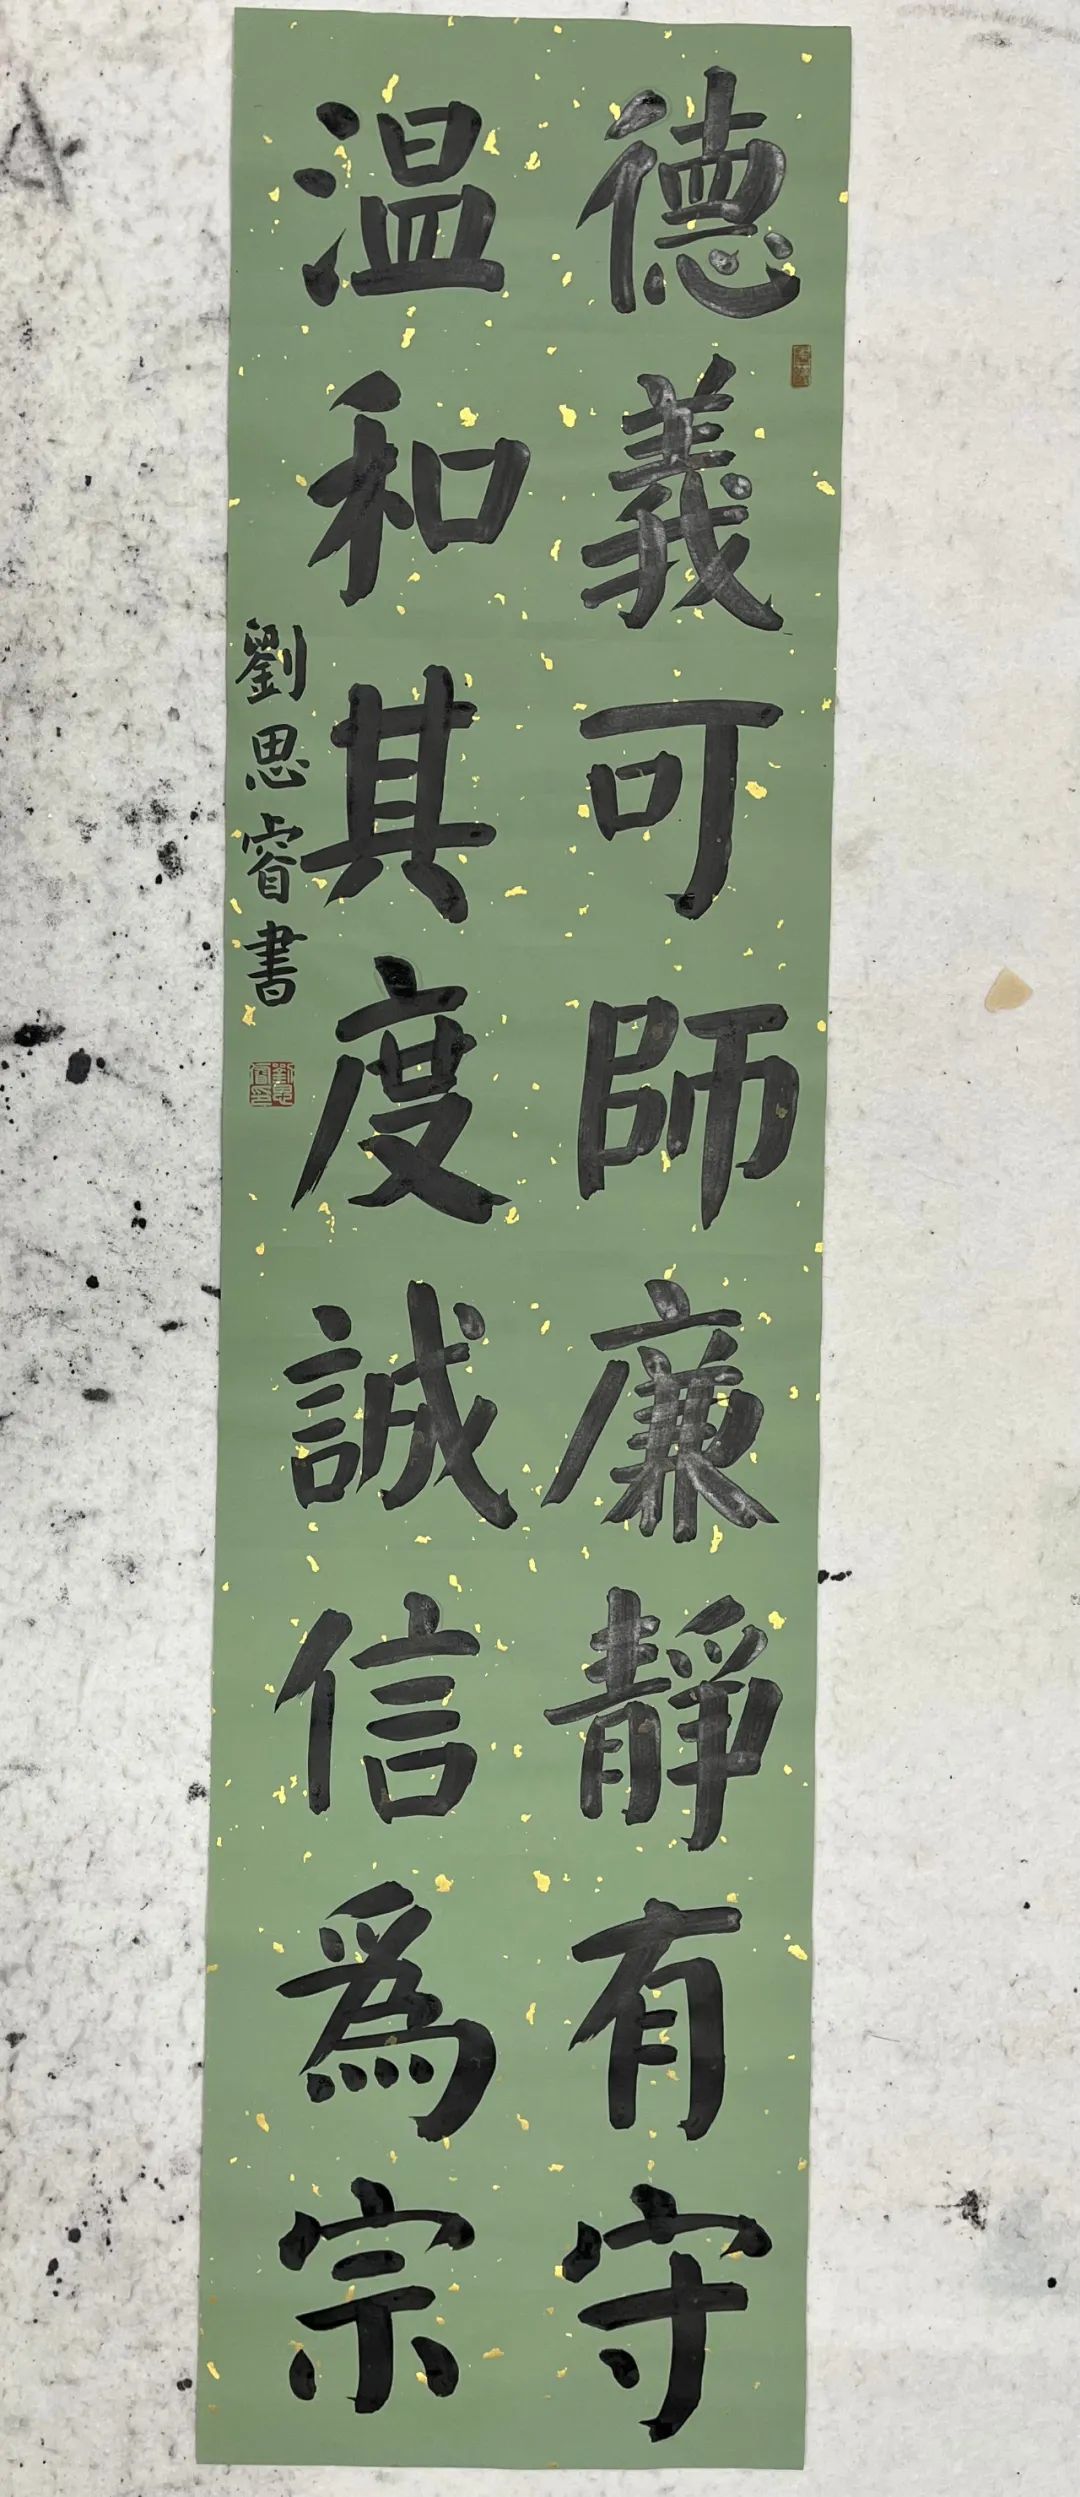 德義可師廉靜有守
温和其度誠信爲宗
劉思睿書